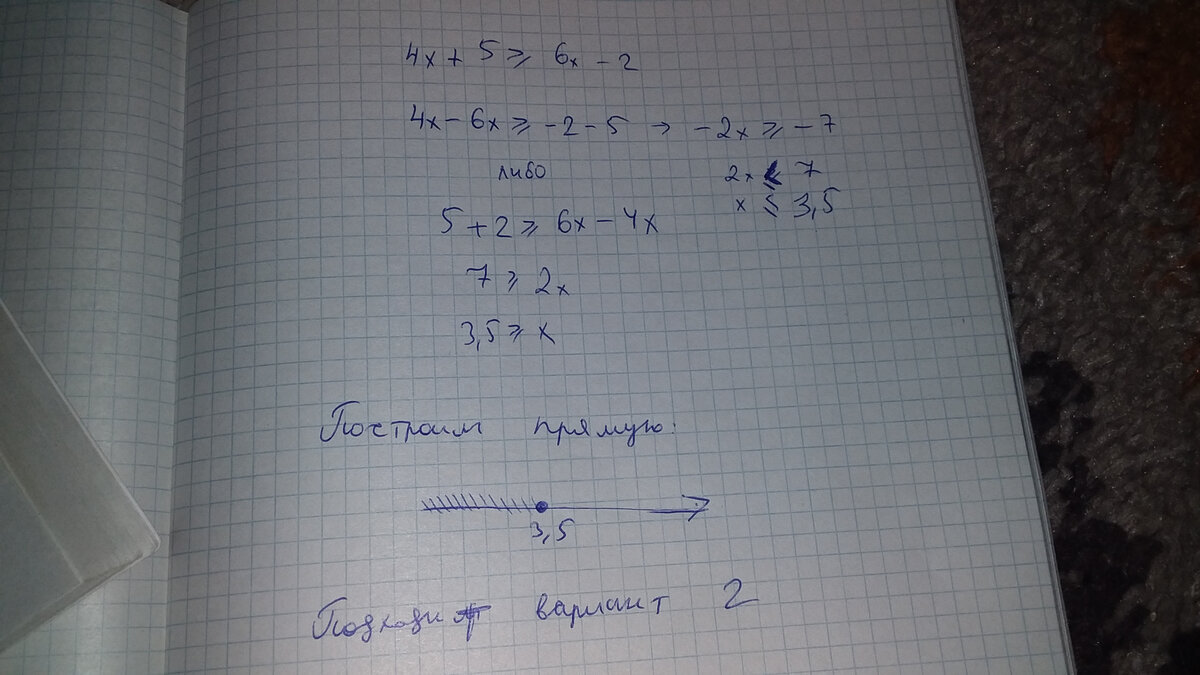 4x + 5 ⩾ 6x - 2
4x - 6x ⩾ -2 - 5 → -2x ⩾ -7
либо
2x ⩽ 7
x ⩽ 3,5
5 + 2 ⩾ 6x - 4x
7 ⩾ 2x
3,5 ⩾ x
Построим прямую:
3,5
Подходит вариант 2